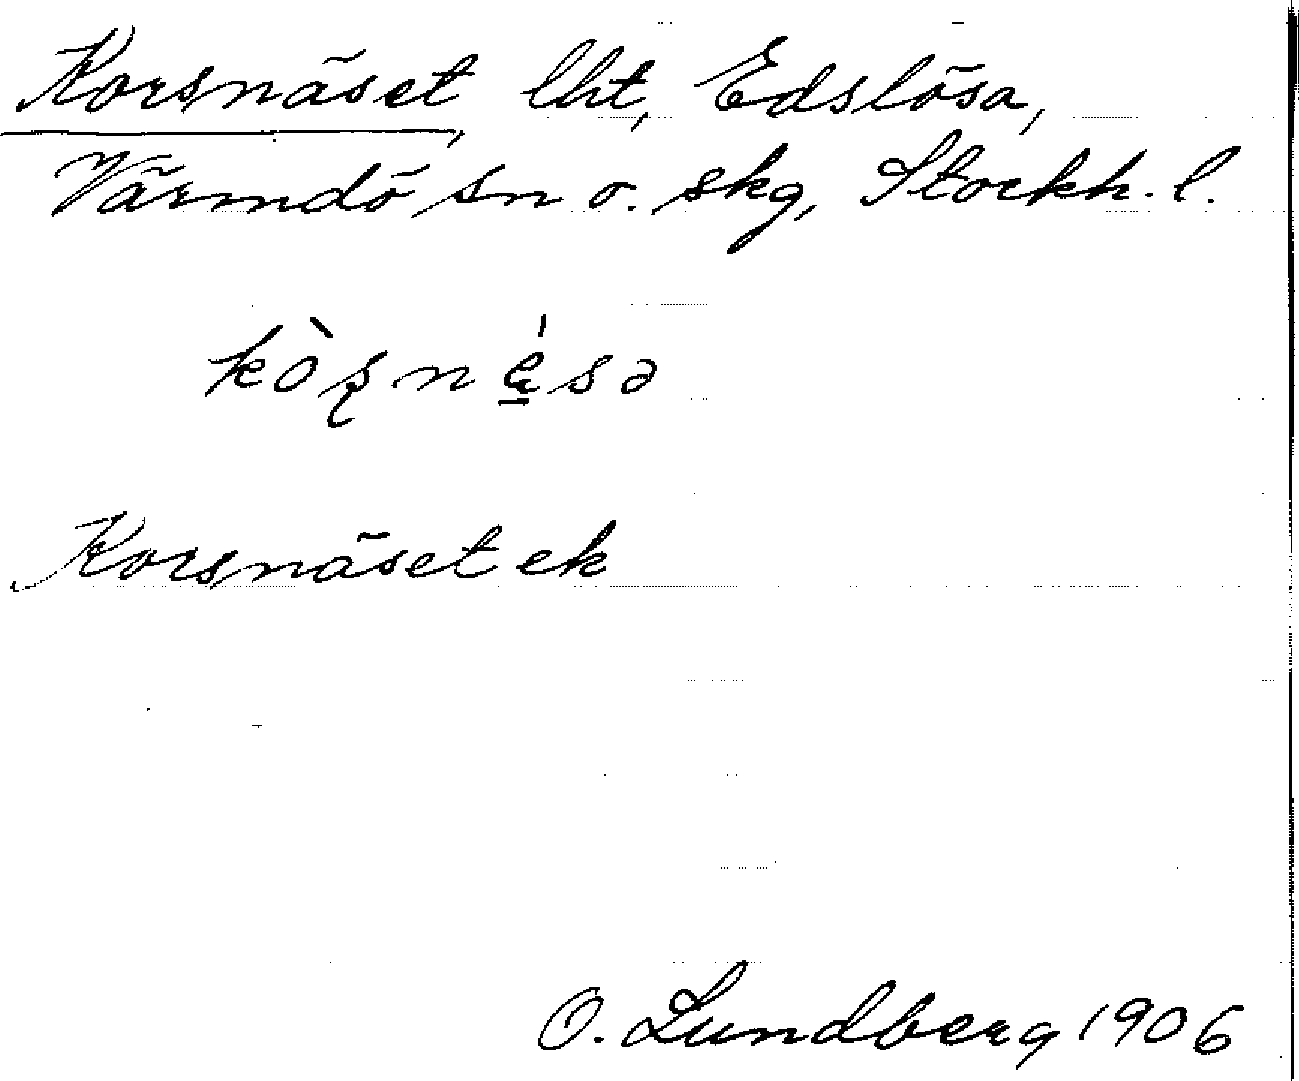 Korsnäset, lht, Edslösa,
Värmdö sn o. skg, Stockh. l.
kòʂnę́sə
Korsnäset ek
O. Lundberg 1906